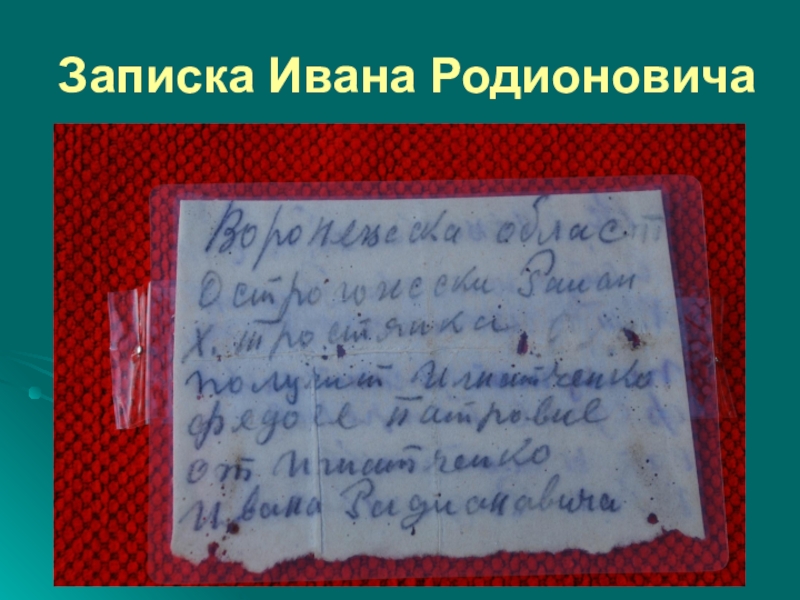 Записка Ивана Родионовича
Воронежска област
Острогожски Раиан
х. тростянка
получит Игнатченко
федосе патровне
от Игнатченко
Ивана Радиановича